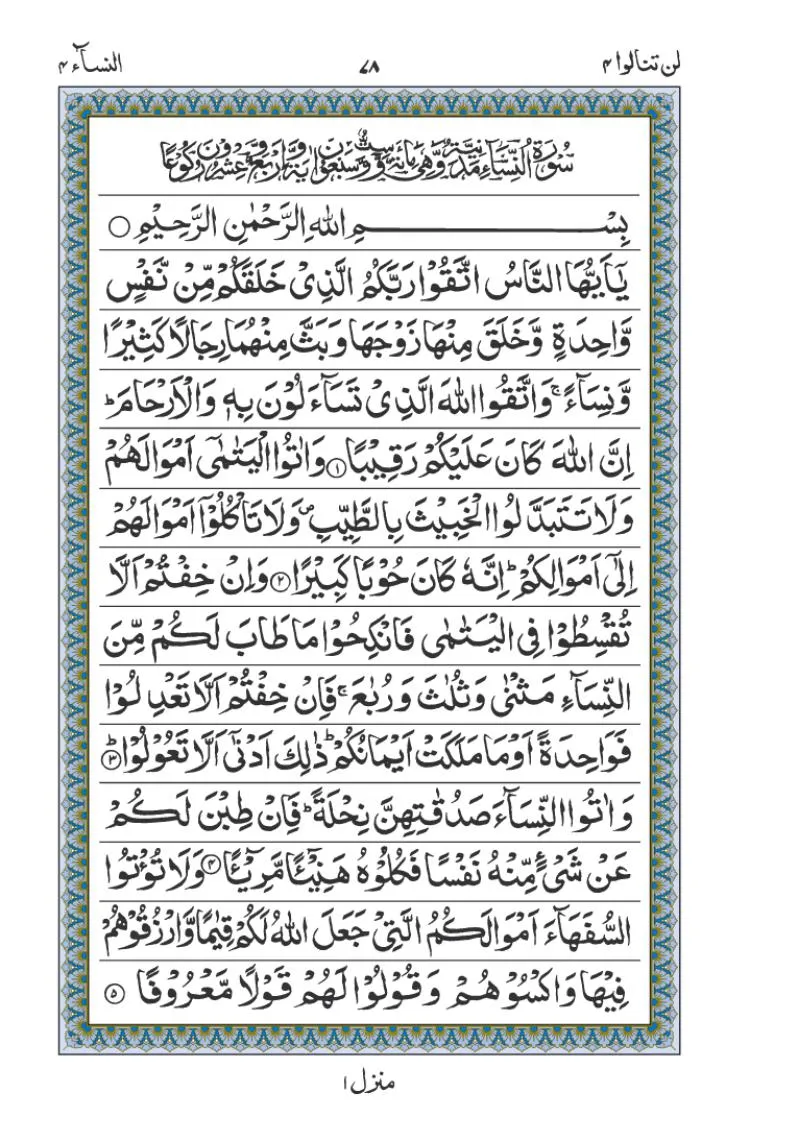 لن تنالوا ۴ ۷۸ النسآء ۴
سُوْرَةُ النِّسَآءِ مَدَنِيَّةٌ وَّهِيَ مِائَةٌ وَّسِتٌّ وَّسَبْعُوْنَ اٰيَةً وَّاَرْبَعٌ وَّعِشْرُوْنَ رُكُوْعًا
بِسْمِ اللهِ الرَّحْمٰنِ الرَّحِيْمِ ○
يٰٓاَيُّهَا النَّاسُ اتَّقُوْا رَبَّكُمُ الَّذِيْ خَلَقَكُمْ مِّنْ نَّفْسٍ
وَّاحِدَةٍ وَّخَلَقَ مِنْهَا زَوْجَهَا وَبَثَّ مِنْهُمَا رِجَالًا كَثِيْرًا
وَّنِسَآءً ۚ وَاتَّقُوا اللهَ الَّذِيْ تَسَآءَلُوْنَ بِهٖ وَالْاَرْحَامَ ؕ
اِنَّ اللهَ كَانَ عَلَيْكُمْ رَقِيْبًا ﴿۱﴾ وَاٰتُوا الْيَتٰمٰٓى اَمْوَالَهُمْ
وَلَا تَتَبَدَّلُوا الْخَبِيْثَ بِالطَّيِّبِ ۪ وَلَا تَاْكُلُوْٓا اَمْوَالَهُمْ
اِلٰٓى اَمْوَالِكُمْ ؕ اِنَّهٗ كَانَ حُوْبًا كَبِيْرًا ﴿۲﴾ وَاِنْ خِفْتُمْ اَلَّا
تُقْسِطُوْا فِى الْيَتٰمٰى فَانْكِحُوْا مَا طَابَ لَكُمْ مِّنَ
النِّسَآءِ مَثْنٰى وَثُلٰثَ وَرُبٰعَ ۚ فَاِنْ خِفْتُمْ اَلَّا تَعْدِلُوْا
فَوَاحِدَةً اَوْ مَا مَلَكَتْ اَيْمَانُكُمْ ؕ ذٰلِكَ اَدْنٰٓى اَلَّا تَعُوْلُوْا ﴿۳﴾ ؕ
وَاٰتُوا النِّسَآءَ صَدُقٰتِهِنَّ نِحْلَةً ؕ فَاِنْ طِبْنَ لَكُمْ
عَنْ شَيْءٍ مِّنْهُ نَفْسًا فَكُلُوْهُ هَنِيْٓئًا مَّرِيْٓئًا ﴿۴﴾ وَلَا تُؤْتُوا
السُّفَهَآءَ اَمْوَالَكُمُ الَّتِيْ جَعَلَ اللهُ لَكُمْ قِيٰمًا وَّارْزُقُوْهُمْ
فِيْهَا وَاكْسُوْهُمْ وَقُوْلُوْا لَهُمْ قَوْلًا مَّعْرُوْفًا ﴿۵﴾
منزل ۱